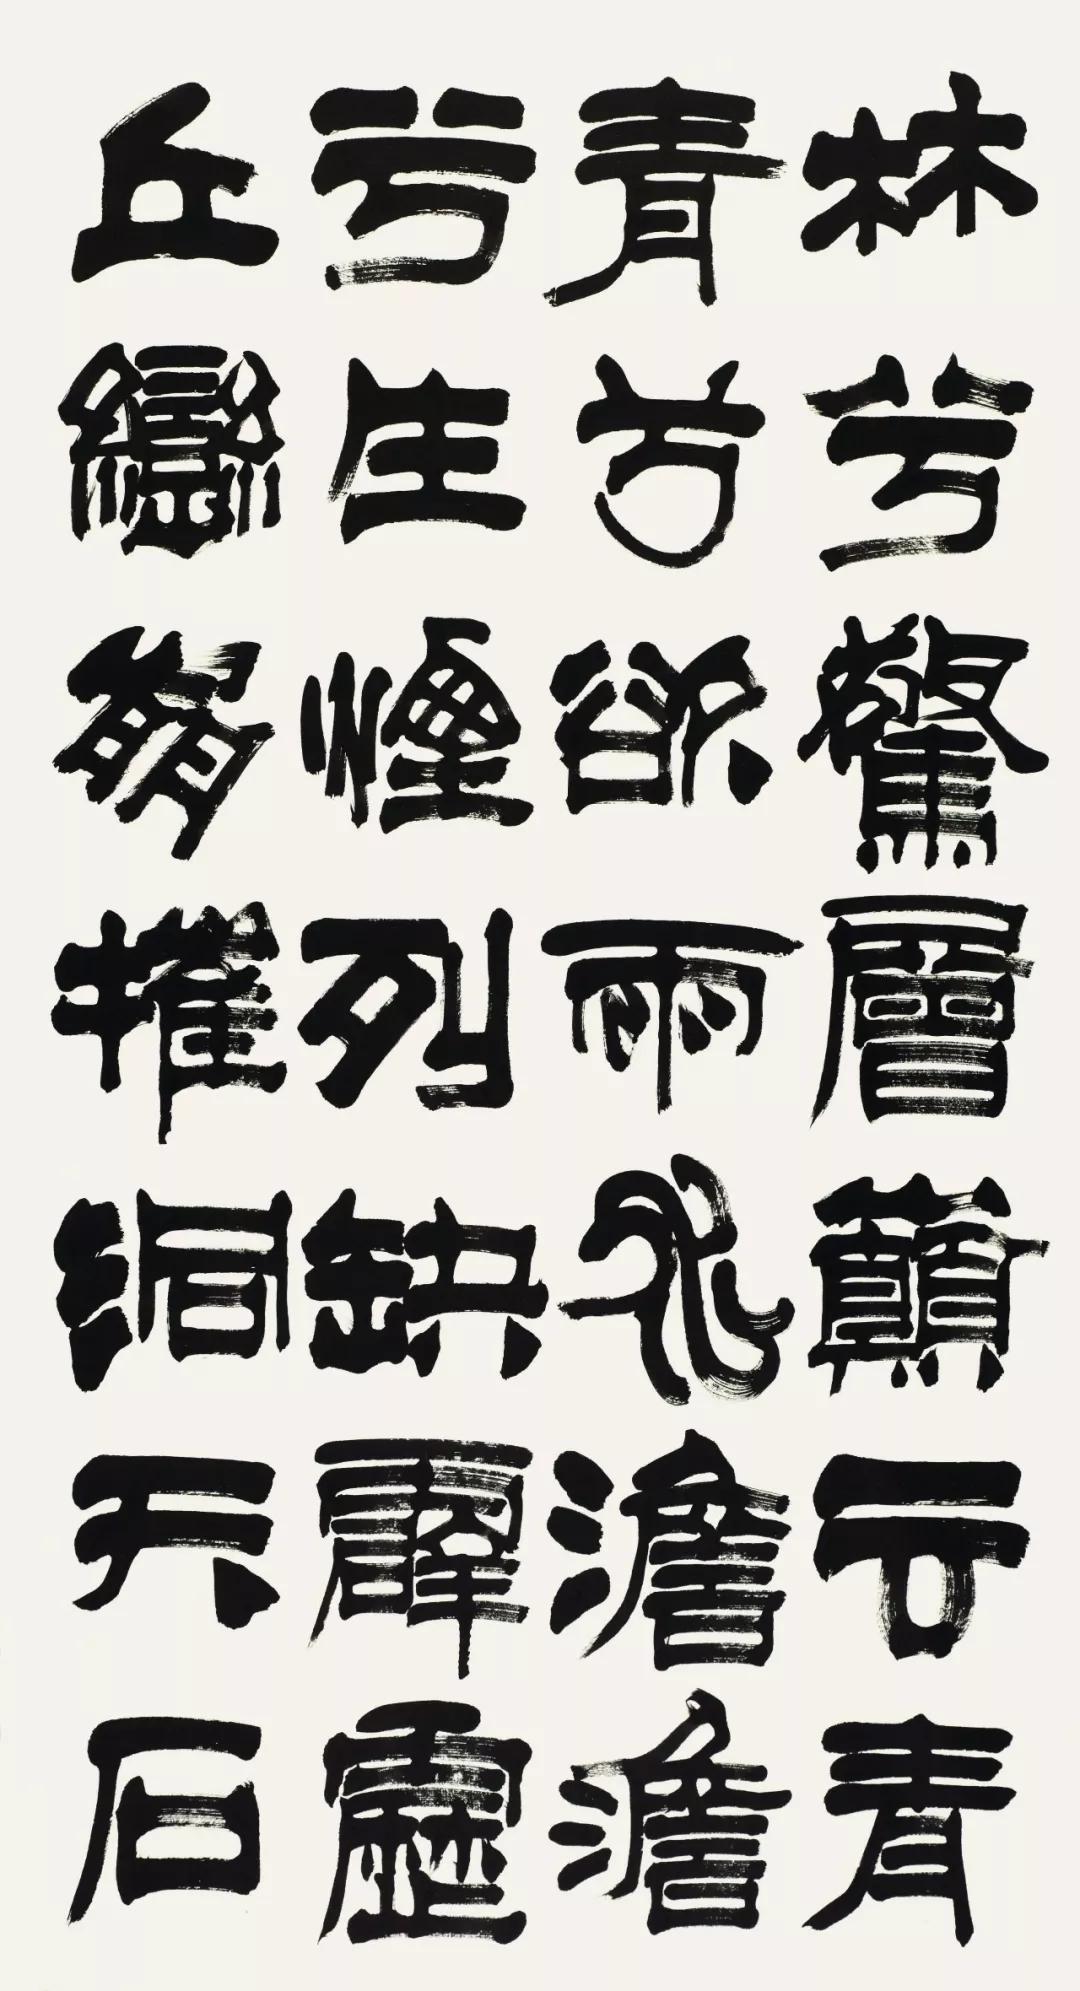 林兮驚層巔云青
青兮欲雨水澹澹
兮生煙列缺霹靂
丘巒崩摧洞天石